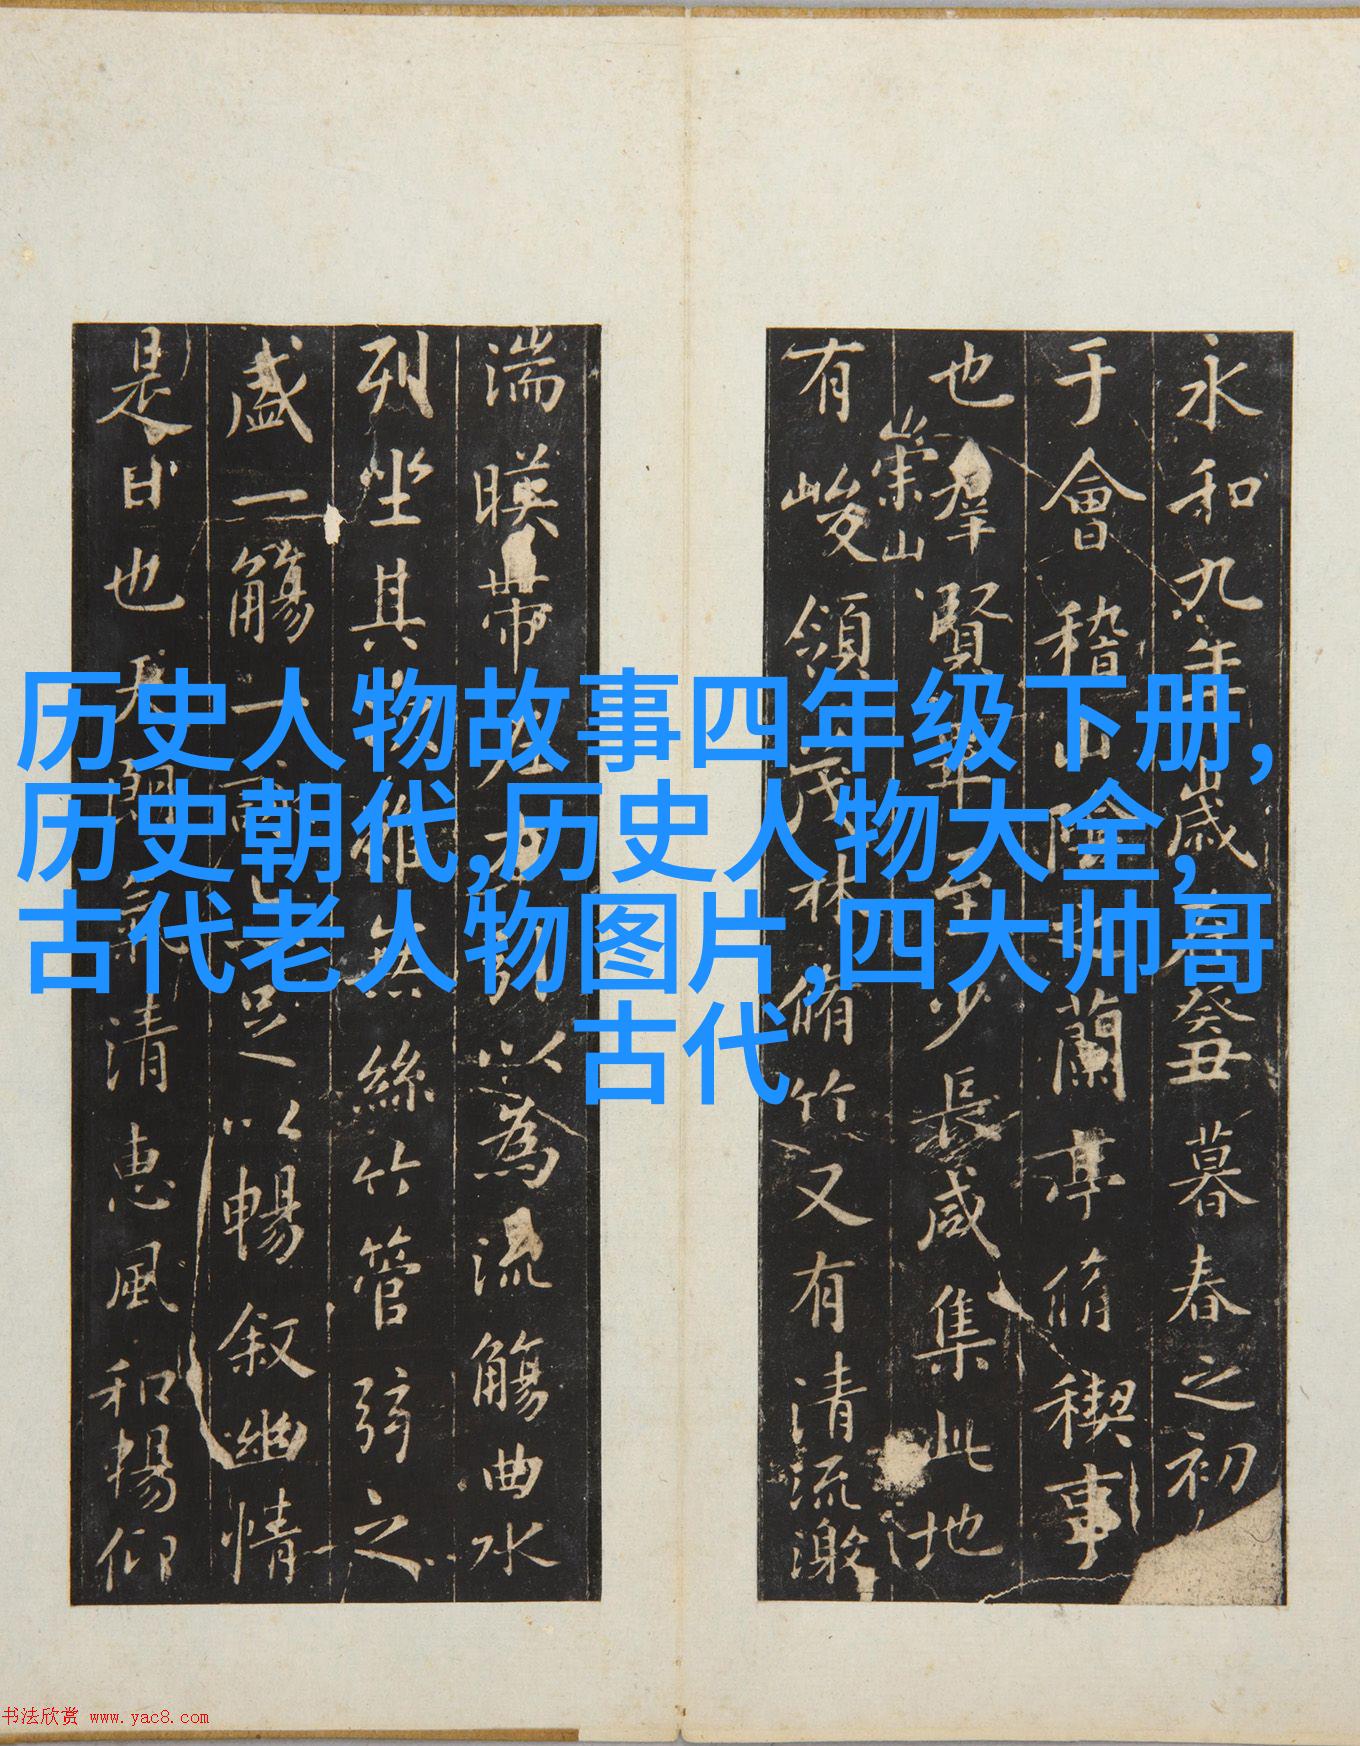 历史人物故事四年级下册,
历史朝代,历史人物大全,
古代老人物图片,四大帅哥
古代
永和九年歲在癸丑暮春之初
于會稽山陰之蘭亭脩稧事
也群賢畢至少長咸集此地
崇山
有峻領茂林脩竹又有清流激
湍暎帶左右引以為流觴曲水
列坐其次雖無絲竹管弦之
盛一觴一詠亦足以暢叙幽情
是日也天朗氣清惠風和暢仰
书法欣赏 www.yac8.com